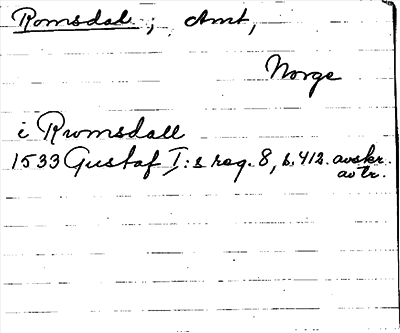 Romsdal ; Amt,
Norge
i Rwmsdall
1533 Gustaf I:s reg. 8, s. 412. avskr.
avtr.